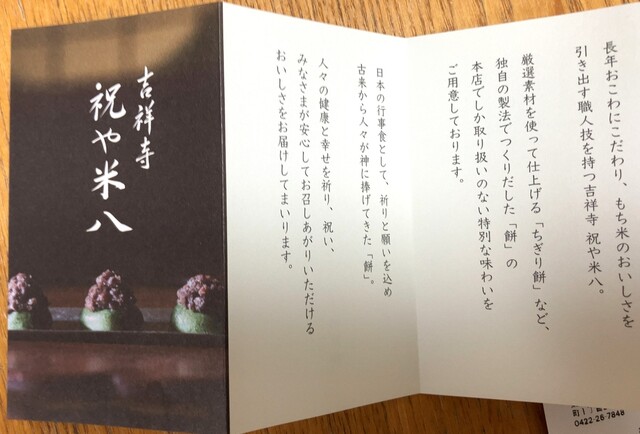 長年おこわにこだわり、もち米のおいしさを
引き出す職人技を持つ吉祥寺 祝や米八。
厳選素材を使って仕上げる「ちぎり餅」など、
独自の製法でつくりだした「餅」の
本店でしか取り扱いのない特別な味わいを
ご用意しております。
日本の行事食として、祈りと願いを込め
古来から人々が神に捧げてきた「餅」。
人々の健康と幸せを祈り、祝い、
みなさまが安心してお召しあがりいただける
おいしさをお届けしてまいります。
吉祥寺
祝や米八
0422-26-7848